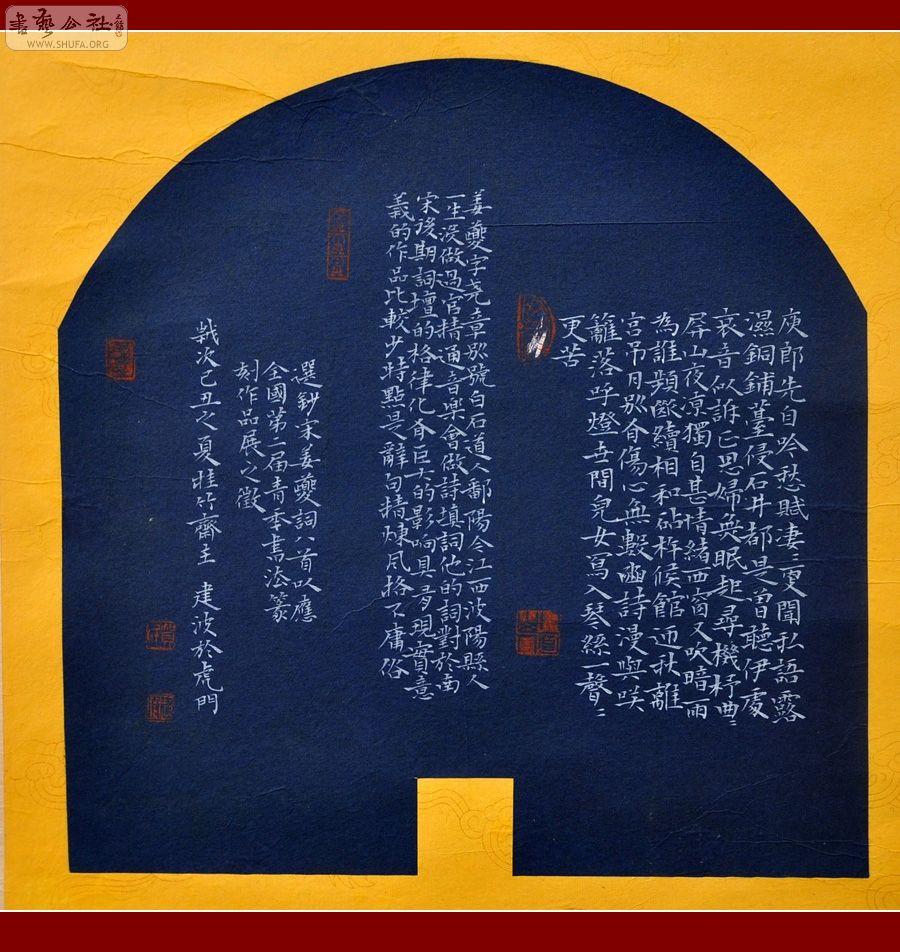 書藝公社
WWW.SHUFA.ORG
庾郎先自吟愁賦淒〻更聞私語露
濕銅鋪薹侵石井都是曾聽伊處
哀音似訴正思婦無眠起尋機杼曲〻
屏山夜凉獨自甚情緒西窗又吹暗雨
為誰頻斷續相和砧杵候館迎秋離
宫吊月別有傷心無數豳詩漫與咲
籬落呼燈世間兒女寫入琴絲一聲〻
更苦
姜夔字堯章別號白石道人鄱陽今江西波陽縣人
一生没做過官精通音樂會做詩填詞他的詞對於南
宋後期詞壇的格律化有巨大的影响具有現實意
義的作品比較少特點是辭句精煉風格不庸俗
選鈔宋姜夔詞八首以應
全國第二届青年書法篆
刻作品展之徵
歲次己丑之夏桂竹齋主 建波於虎門